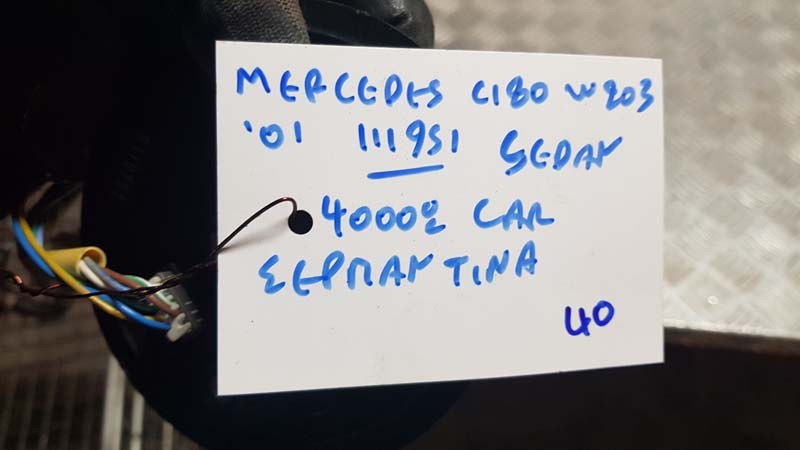 MERCEDES C180 W203
'01 111951 SEDAN
40002 CAR
ΣΕΡΜΑΝΤΙΝΑ
40